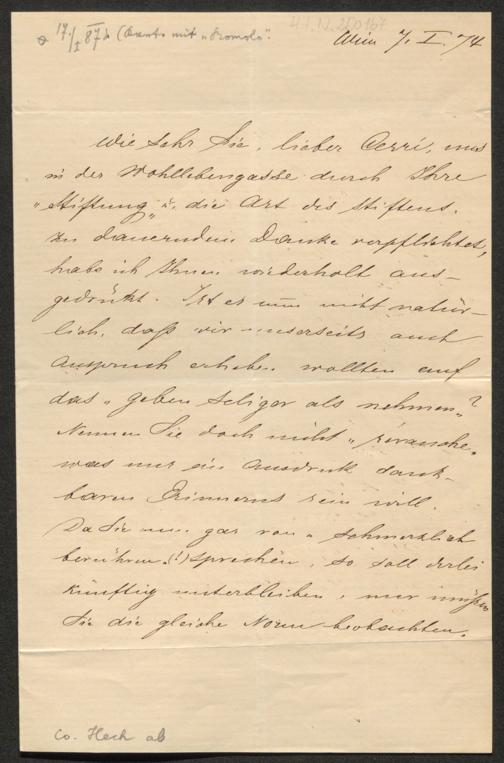 H.I.N. 250167
Wien 7. I. 74
wie sehr Sie, lieber Cerri, uns
in der Wohllebengasse durch Ihre
"Stiftung" u. die Art des Stiftens.
zu dauerndem Danke verpflichtet,
habe ich Ihnen wiederholt aus-
gedrükt. Ist es nun nicht natür-
lich, daß wir unserseits auch
Anspruch erheben wollten auf
das "geben seliger als nehmen"?
Nennen Sie doch nicht "revanche"
was nur ein Ausdruk dank-
baren Erinnerns sein will.
Da Sie nun gar von "schmerzlich
berühren" (!) sprechen, so soll derlei
künftig unterbleiben, nur müßen
Sie die gleiche Norm beobachten.
Co. Heck ab